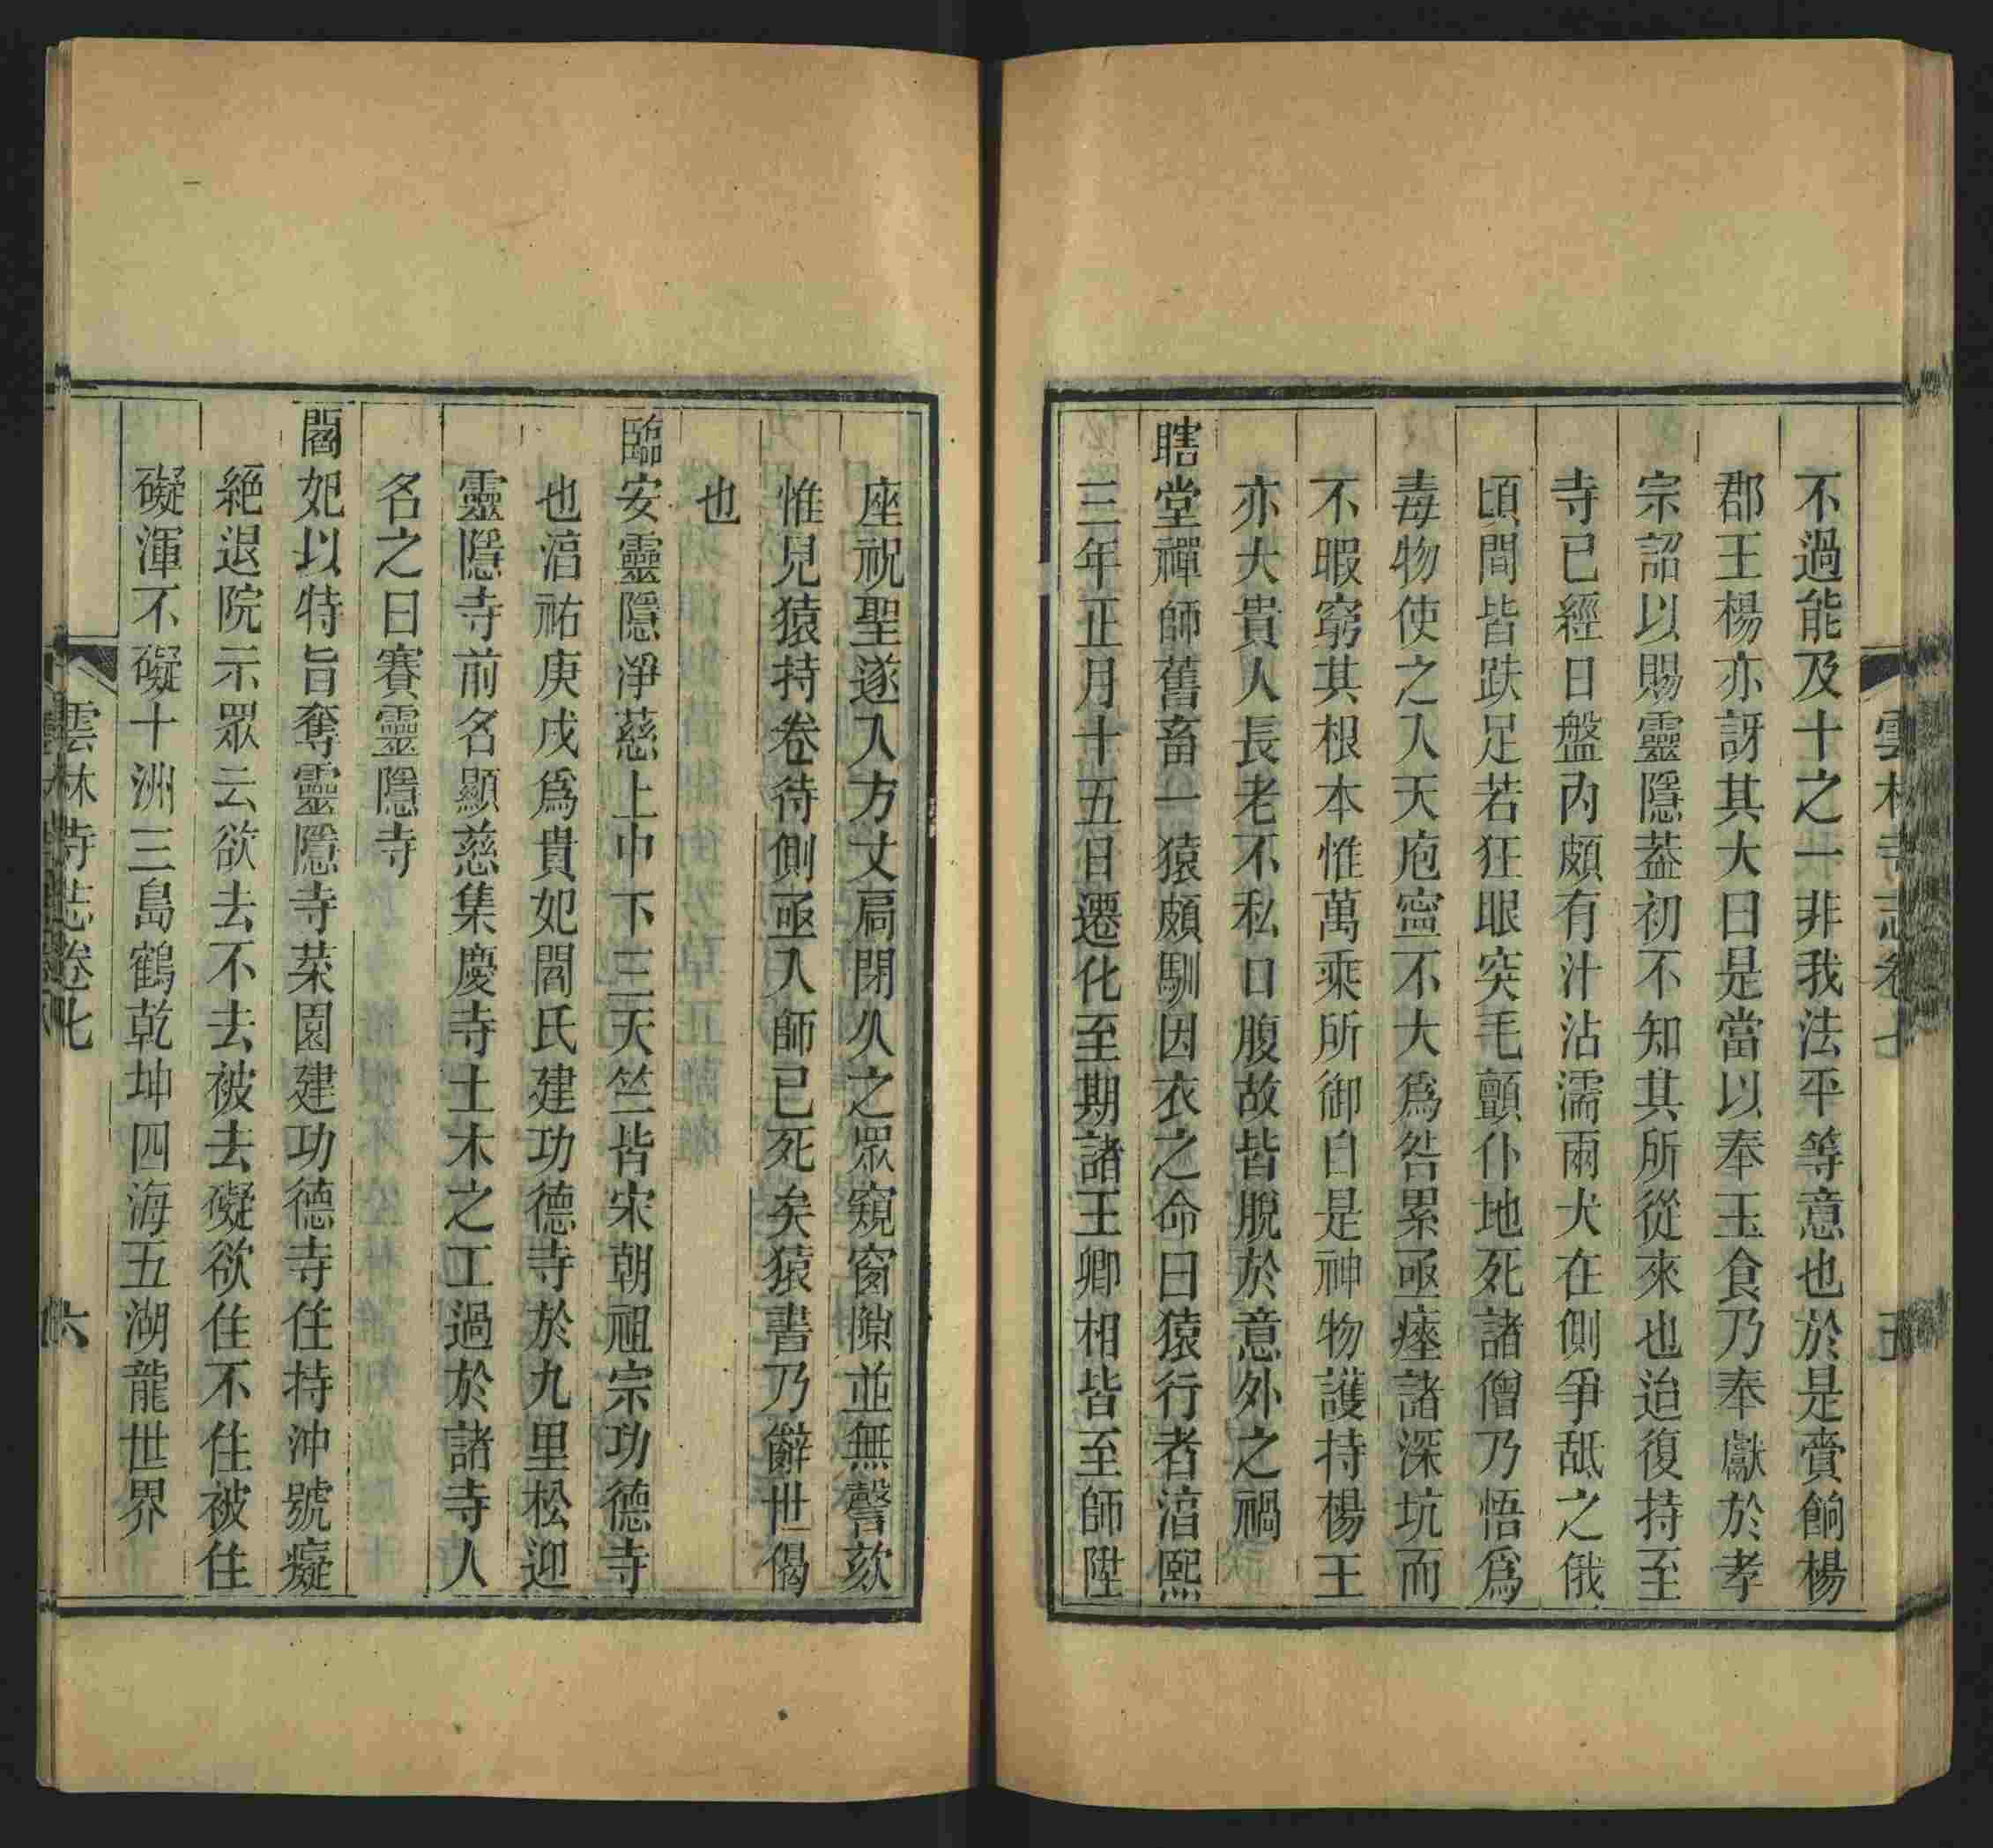 雲林寺志卷七
五
不過能及十之一非我法平等意也於是賫餉楊
郡王楊亦訝其大曰是當以奉玉食乃奉獻於孝
宗詔以賜靈隱葢初不知其所從來也迨復持至
寺已經日盤內頗有汁沾濡兩犬在側爭舐之俄
頃間皆跌足若狂眼突毛顫仆地死諸僧乃悟爲
毒物使之入天庖寧不大爲咎累亟瘞諸深坑而
不暇窮其根本惟萬乘所御自是神物護持楊王
亦大貴人長老不私口腹故皆脫於意外之禍
瞎堂禪師舊畜一猿頗馴因衣之命曰猿行者湻熙
三年正月十五日遷化至期諸王卿相皆至師陞
座祝聖遂入方丈扃閉久之眾窺窗隙並無聲欬
惟見猿持卷待側亟入師已死矣猿書乃辭世偈
也
臨安靈隱淨慈上中下三天竺皆宋朝祖宗功德寺
也湻祐庚戌爲貴妃閻氏建功德寺於九里松迎
靈隱寺前名顯慈集慶寺土木之工過於諸寺人
名之曰賽靈隱寺
閻妃以特旨奪靈隱寺菜園建功德寺住持沖號癡
絕退院示眾云欲去不去被去礙欲住不住被住
礙渾不礙十洲三島鶴乾坤四海五湖龍世界
雲林寺志卷七
六